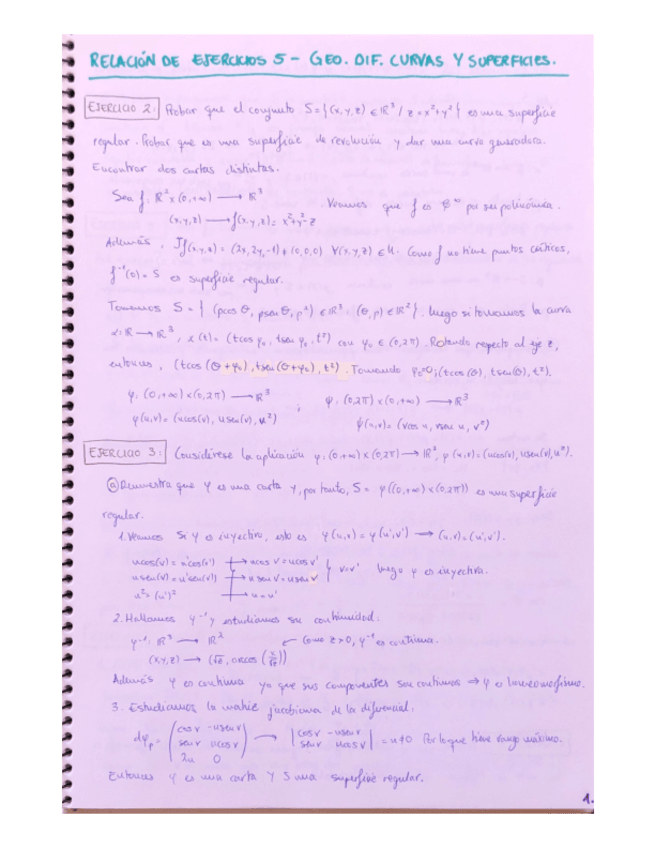 RELACIÓN DE EJERCICIOS 5 - GEO. DIF. CURVAS Y SUPERFICIES.
EJERCICIO 2: Probar que el conjunto S={(x,y,z) ∈ ℝ³ / z = x²+y²} es una superficie
regular. Probar que es una superficie de revolución y dar una curva generadora.
Encontrar dos cartas distintas.
Sea f: ℝ² x (0,+∞) → ℝ³ Veamos que f es 𝒞^∞ por ser polinómica.
(x,y,z) → f(x,y,z) = x²+y²-z
Además, Jf(x,y,z) = (2x, 2y, -1) ≠ (0,0,0) ∀(x,y,z) ∈ U. Como f no tiene puntos críticos,
f⁻¹(0) = S es superficie regular.
Tomamos S = { (ρcos θ, ρsen θ, ρ²) ∈ ℝ³ : (θ,ρ) ∈ ℝ² }. Luego si tomamos la curva
α: ℝ → ℝ³, α(t) = (t cos φ₀, t sen φ₀, t²) con φ₀ ∈ (0,2π). Rotando respecto al eje z,
entonces, (t cos (θ+φ₀), t sen (θ+φ₀), t²). Tomando φ₀=0; (t cos(θ), t sen(θ), t²).
φ: (0,+∞) x (0,2π) → ℝ³ ; ψ: (0,2π) x (0,+∞) → ℝ³
φ(u,v) = (u cos(v), u sen(v), u²) ψ(u,v) = (v cos u, v sen u, v²)
EJERCICIO 3: Considérese la aplicación φ: (0,+∞) x (0,2π) → ℝ³, φ(u,v) = (u cos(v), u sen(v), u²).
ⓐ Demuestra que φ es una carta y, por tanto, S = φ((0,+∞) x (0,2π)) es una superficie
regular.
1. Veamos si φ es inyectiva, esto es φ(u,v) = φ(u',v') → (u,v) = (u',v').
u cos(v) = u' cos(v') → u cos v = u cos v'
u sen(v) = u' sen(v') → u sen v = u sen v' } v=v' luego φ es inyectiva.
u² = (u')² → u = u'
2. Hallamos φ⁻¹ y estudiamos su continuidad.
φ⁻¹: ℝ³ → ℝ² ← Como z>0, φ⁻¹ es continua.
(x,y,z) → (√z, arcos (x/√z))
Además φ es continua ya que sus componentes son continuas ⇒ φ es homeomorfismo.
3. Estudiamos la matriz jacobiana de la diferencial.
dφₚ = (cos v -u sen v; sen v u cos v; 2u 0) → |cos v -u sen v; sen v u cos v| = u ≠ 0 Por lo que tiene rango máximo.
Entonces φ es una carta y S una superficie regular.
1.